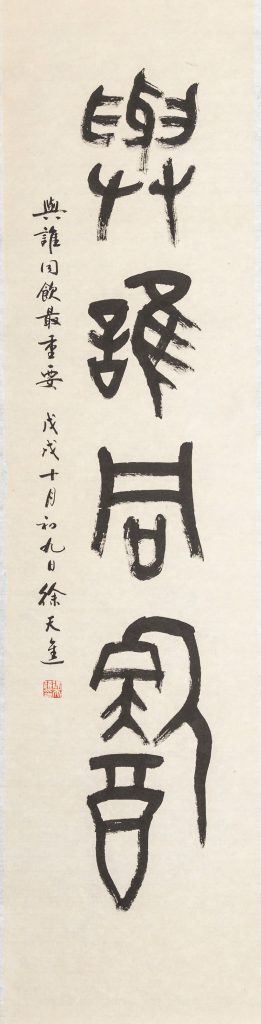 與誰同飲
與誰同飲最重要 戊戌十月初九日徐天進